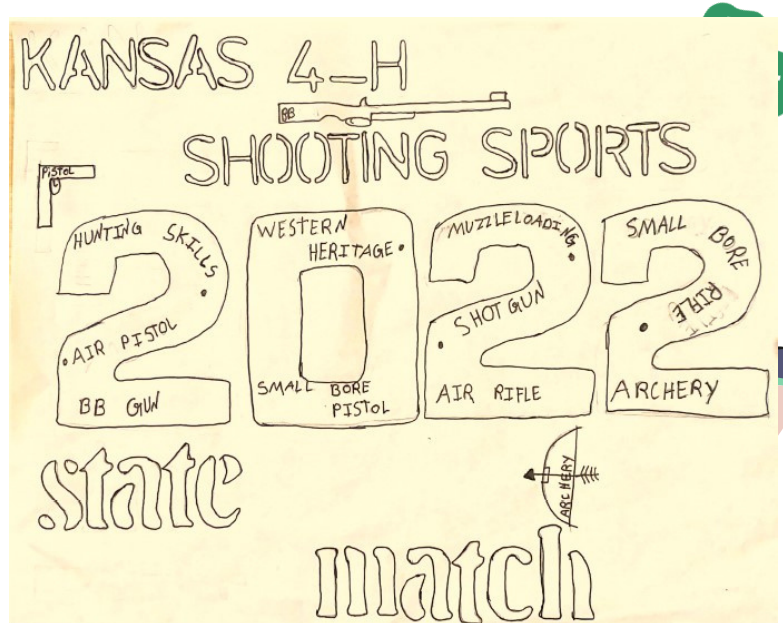 KANSAS 4-H
BB
SHOOTING SPORTS
PISTOL
HUNTING SKILLS
AIR PISTOL
BB GUN
WESTERN
HERITAGE
SMALL BORE
PISTOL
MUZZLELOADING
SHOTGUN
AIR RIFLE
SMALL BORE
RIFLE
ARCHERY
2022
state
ARCHERY
match